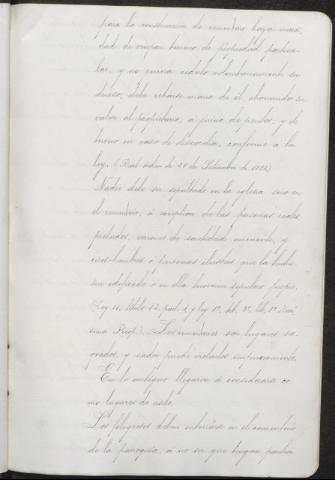 para la construcción de cementerios haya nece-
sidad de ocupar terreno de propiedad particu-
lar, y no quiera cederlo voluntariamente su
dueño, debe echarse mano de él abonando su
valor al propietario, a juicio de peritos, y de
tercero en caso de discordia, conforme á la
ley. (Real orden de 28 de Setiembre de 1822)
Nadie debe ser sepultado en la iglesia sino en
el cementerio, á excepcion de las personas reales
prelados, varones de santidad eminente, y
ricos-hombres ó personas ilustres que la hubie-
sen edificado ó en ella tuviesen sepulcro propio.
(Ley 11, título 13, part. 1, y ley 1ª, tít. 3º, lib. 1º
Recop.). Los cementerios son lugares sa-
grados, y nadie puede violarlos impunemente.
En lo antiguo llegaron á considerarse co-
mo lugares de asilo.
Los feligreses deben enterrarse en el cementerio
de la parroquia, á no ser que tengan panteon